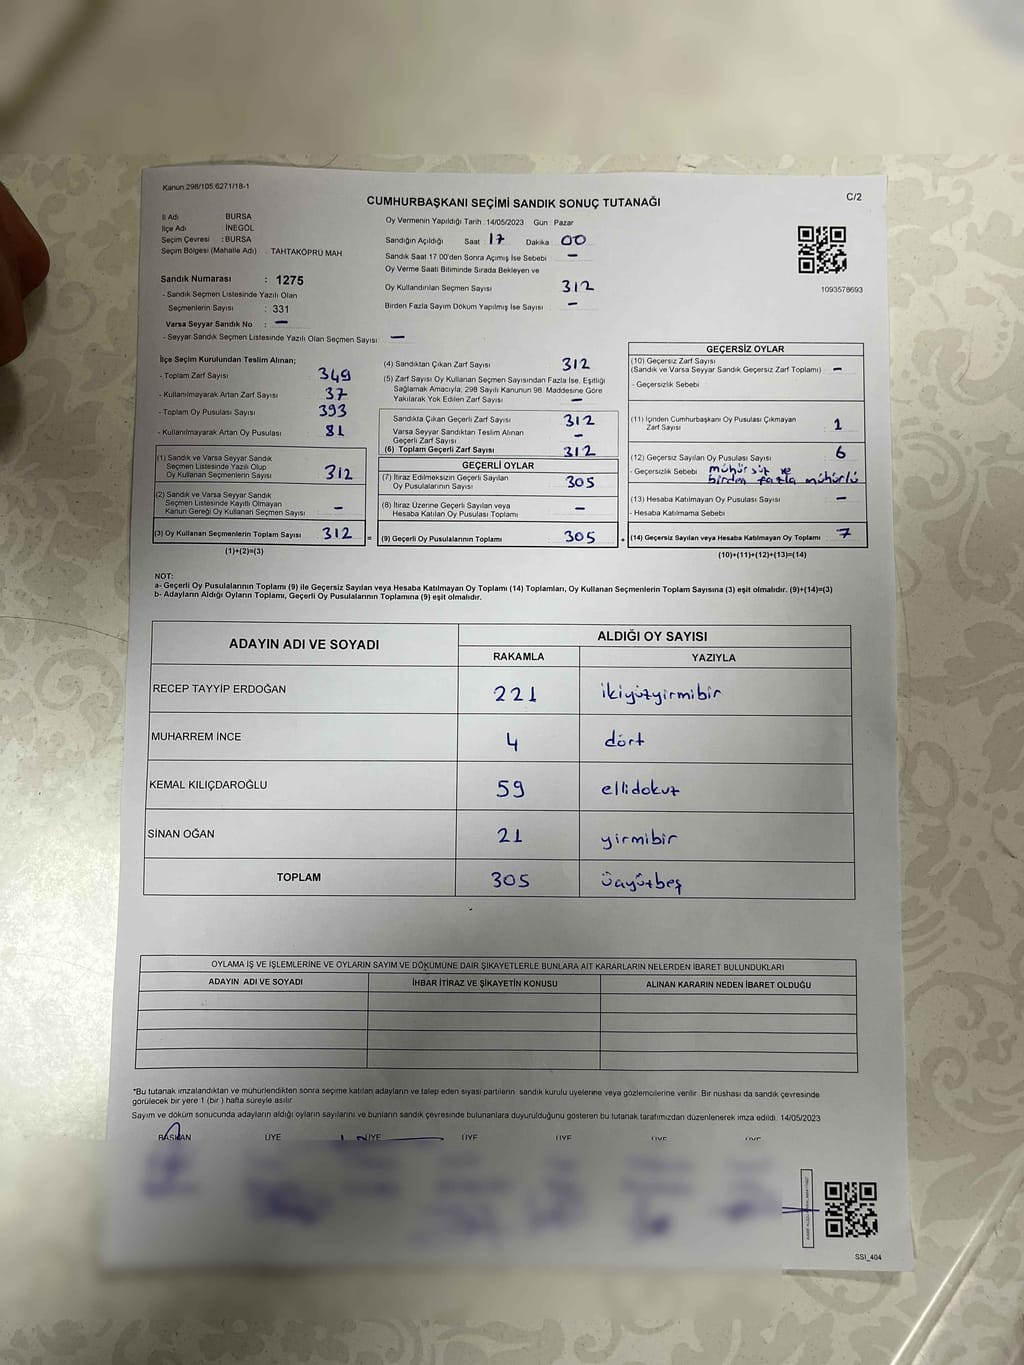 Kanun 298/105,6271/18-1
CUMHURBAŞKANI SEÇİMİ SANDIK SONUÇ TUTANAĞI
C/2
İl Adı BURSA
İlçe Adı İNEGÖL
Seçim Çevresi : BURSA
Seçim Bölgesi (Mahalle Adı) : TAHTAKÖPRÜ MAH
Sandık Numarası : 1275
- Sandık Seçmen Listesinde Yazılı Olan
Seçmenlerin Sayısı : 331
Varsa Seyyar Sandık No : –
- Seyyar Sandık Seçmen Listesinde Yazılı Olan Seçmen Sayısı –
Oy Vermenin Yapıldığı Tarih : 14/05/2023 Gün : Pazar
Sandığın Açıldığı Saat : 17 Dakika : 00
Sandık Saat 17.00'den Sonra Açımış İse Sebebi –
Oy Verme Saati Bitiminde Sırada Bekleyen ve
Oy Kullandırılan Seçmen Sayısı 312
Birden Fazla Sayım Döküm Yapılmış İse Sayısı –
1093578693
İlçe Seçim Kurulundan Teslim Alınan;
- Toplam Zarf Sayısı 349
- Kullanılmayarak Artan Zarf Sayısı 37
- Toplam Oy Pusulası Sayısı 393
- Kullanılmayarak Artan Oy Pusulası 81
(1) Sandık ve Varsa Seyyar Sandık
Seçmen Listesinde Yazılı Olup
Oy Kullanan Seçmenlerin Sayısı 312
(2) Sandık ve Varsa Seyyar Sandık
Seçmen Listesinde Kayıtlı Olmayan
Kanun Gereği Oy Kullanan Seçmen Sayısı –
(3) Oy Kullanan Seçmenlerin Toplam Sayısı 312
(1)+(2)=(3)
(4) Sandıktan Çıkan Zarf Sayısı 312
(5) Zarf Sayısı Oy Kullanan Seçmen Sayısından Fazla İse, Eşitliği
Sağlamak Amacıyla, 298 Sayılı Kanunun 98. Maddesine Göre
Yakılarak Yok Edilen Zarf Sayısı –
Sandıkta Çıkan Geçerli Zarf Sayısı 312
Varsa Seyyar Sandıktan Teslim Alınan
Geçerli Zarf Sayısı –
(6) Toplam Geçerli Zarf Sayısı 312
GEÇERLİ OYLAR
(7) İtiraz Edilmeksizin Geçerli Sayılan
Oy Pusulalarının Sayısı 305
(8) İtiraz Üzerine Geçerli Sayılan veya
Hesaba Katılan Oy Pusulası Toplamı –
= (9) Geçerli Oy Pusulalarının Toplamı 305 +
GEÇERSİZ OYLAR
(10) Geçersiz Zarf Sayısı
(Sandık ve Varsa Seyyar Sandık Geçersiz Zarf Toplamı) –
- Geçersizlik Sebebi
(11) İçinden Cumhurbaşkanı Oy Pusulası Çıkmayan
Zarf Sayısı 1
(12) Geçersiz Sayılan Oy Pusulası Sayısı 6
- Geçersizlik Sebebi mühürsüz ve
birden fazla mühürlü
(13) Hesaba Katılmayan Oy Pusulası Sayısı –
- Hesaba Katılmama Sebebi
(14) Geçersiz Sayılan veya Hesaba Katılmayan Oy Toplamı 7
(10)+(11)+(12)+(13)=(14)
NOT:
a- Geçerli Oy Pusulalarının Toplamı (9) ile Geçersiz Sayılan veya Hesaba Katılmayan Oy Toplamı (14) Toplamları, Oy Kullanan Seçmenlerin Toplam Sayısına (3) eşit olmalıdır. (9)+(14)=(3)
b- Adayların Aldığı Oyların Toplamı, Geçerli Oy Pusulalarının Toplamına (9) eşit olmalıdır.
ADAYIN ADI VE SOYADI ALDIĞI OY SAYISI
RAKAMLA YAZIYLA
RECEP TAYYİP ERDOĞAN 221 ikiyüzyirmibir
MUHARREM İNCE 4 dört
KEMAL KILIÇDAROĞLU 59 ellidokuz
SİNAN OĞAN 21 yirmibir
TOPLAM 305 üçyüzbeş
OYLAMA İŞ VE İŞLEMLERİNE VE OYLARIN SAYIM VE DÖKÜMÜNE DAİR ŞİKAYETLERLE BUNLARA AİT KARARLARIN NELERDEN İBARET BULUNDUKLARI
ADAYIN ADI VE SOYADI İHBAR İTİRAZ VE ŞİKAYETİN KONUSU ALINAN KARARIN NEDEN İBARET OLDUĞU
*Bu tutanak imzalandıktan ve mühürlendikten sonra seçime katılan adayların ve talep eden siyasi partilerin sandık kurulu üyelerine veya gözlemcilerine verilir. Bir nüshası da sandık çevresinde
görülecek bir yere 1 (bir ) hafta süreyle asılır.
Sayım ve döküm sonucunda adayların aldığı oyların sayılarını ve bunların sandık çevresinde bulunanlara duyurulduğunu gösteren bu tutanak tarafımızdan düzenlenerek imza edildi. 14/05/2023
BAŞKAN ÜYE ÜYE ÜYE ÜYE ÜYE ÜYE
SSI_404